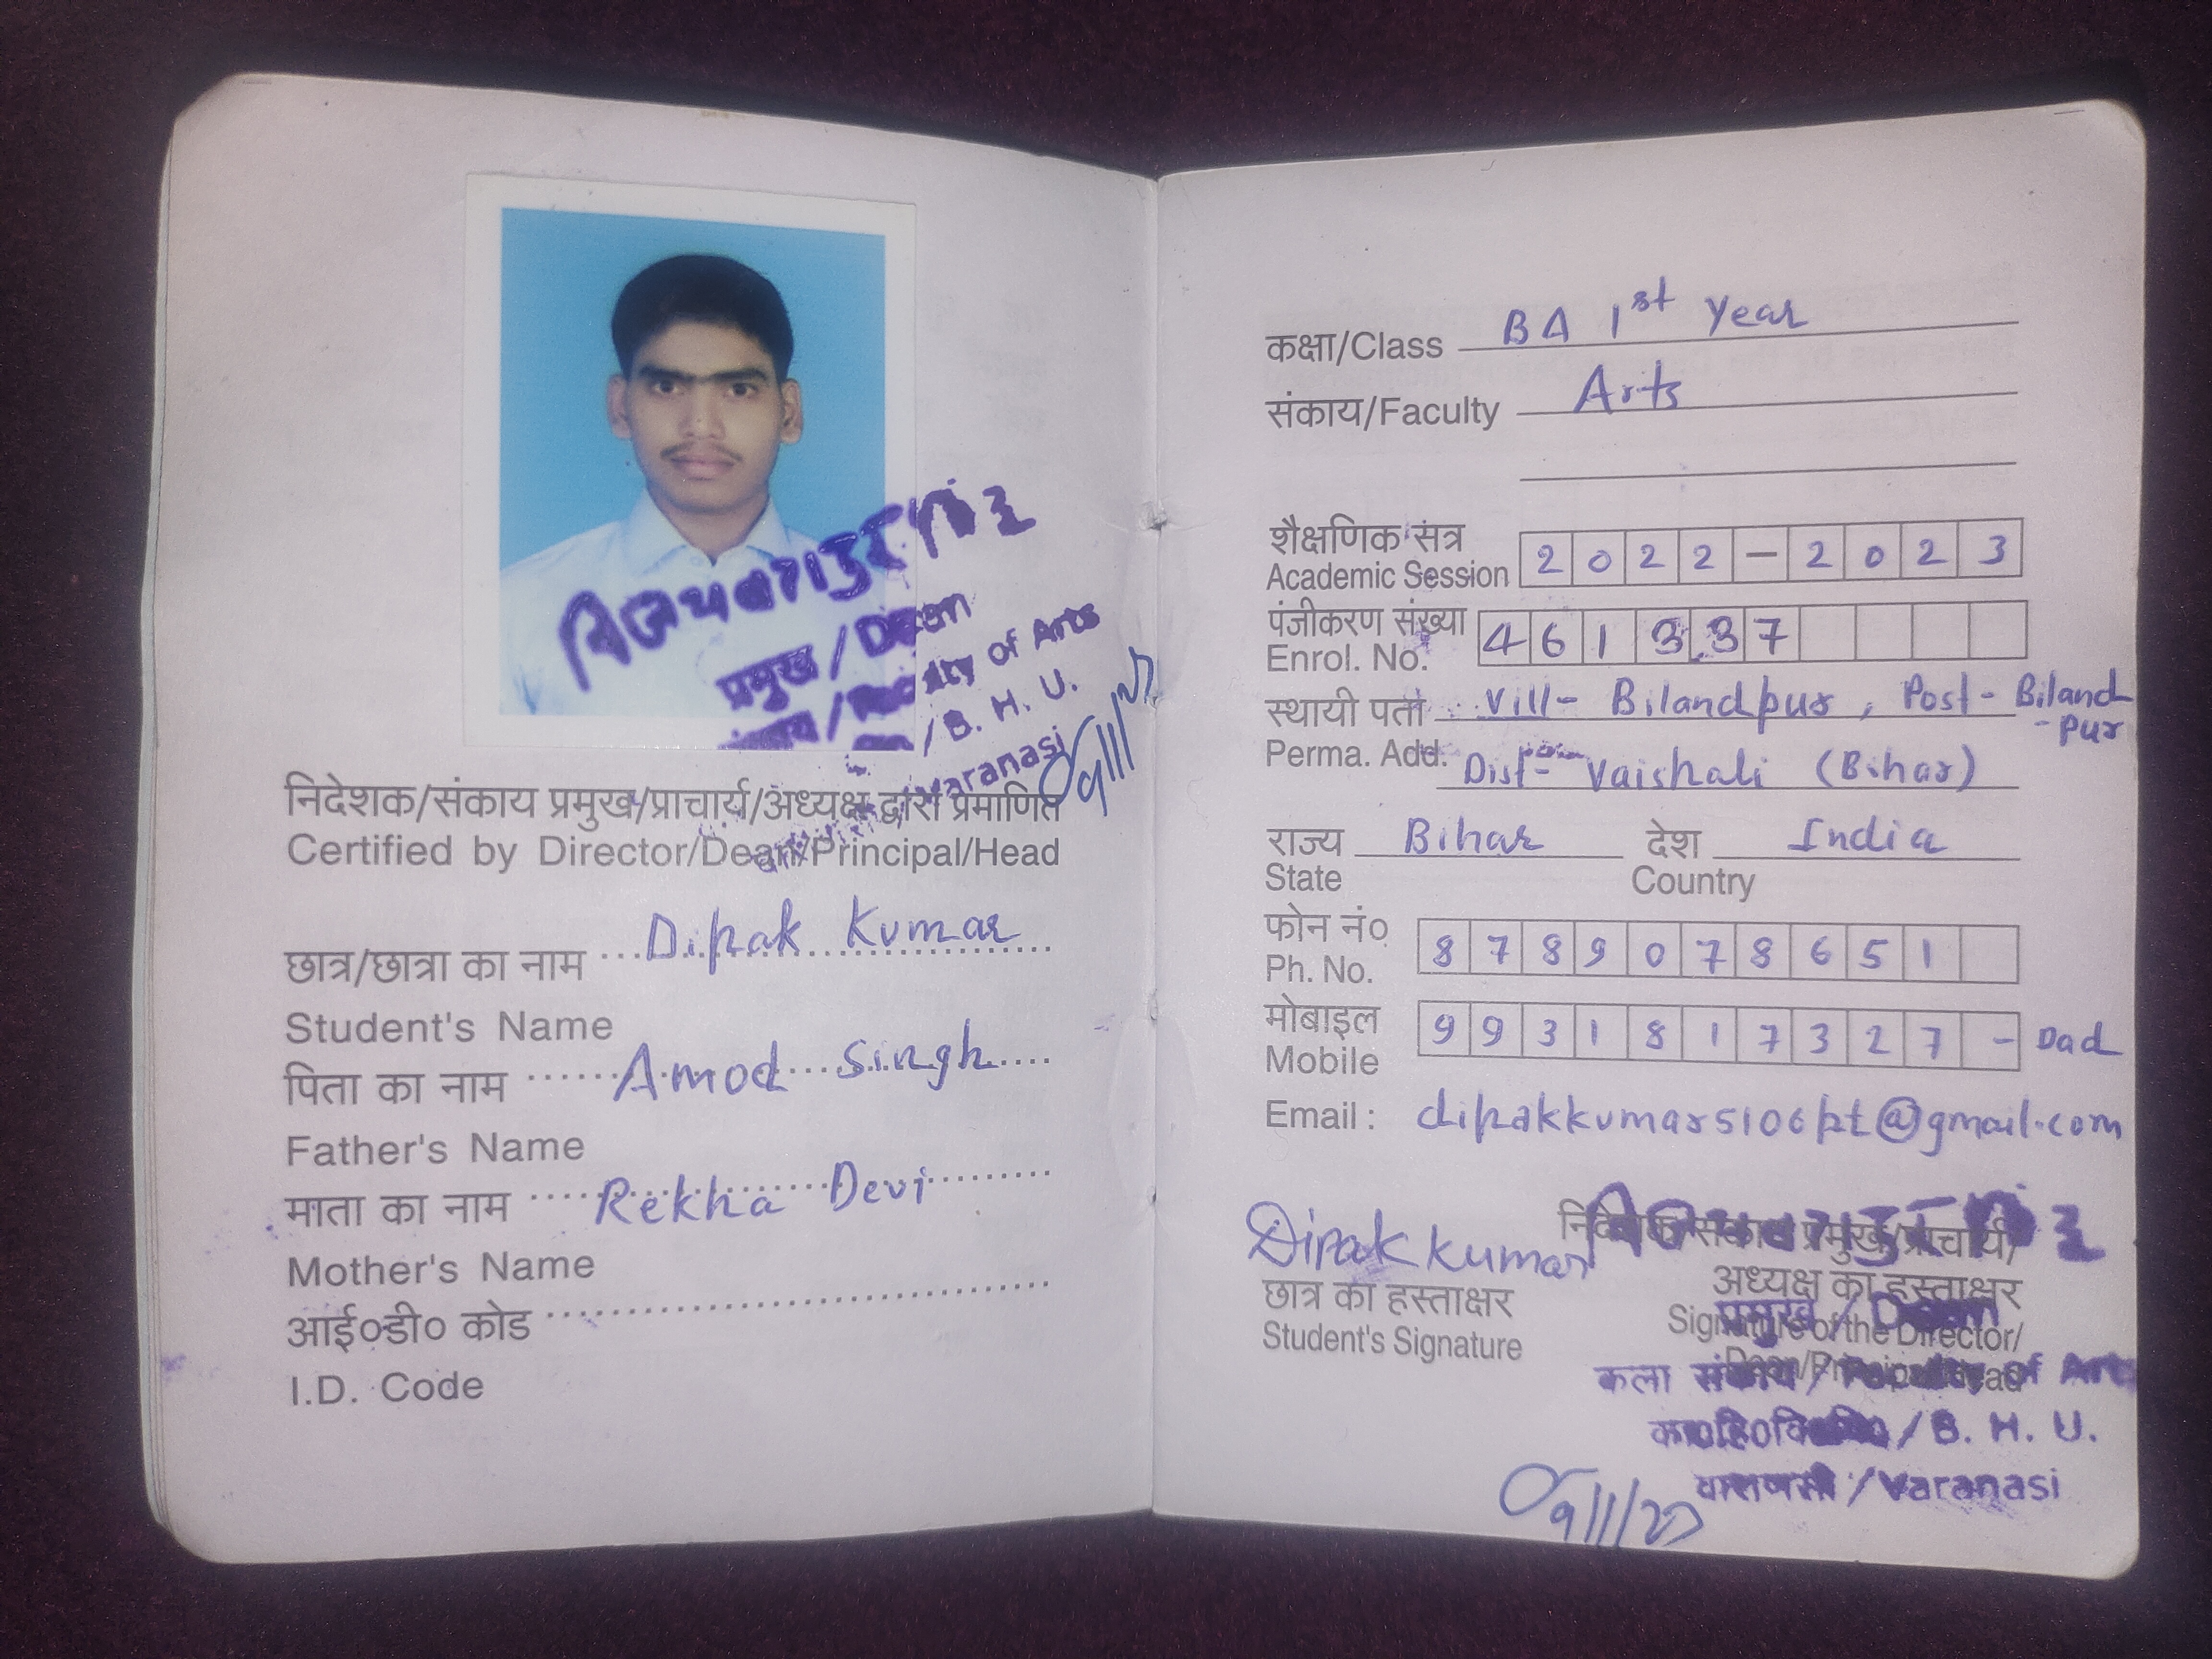 प्रमुख / Dean
Faculty of Arts
/ B. H. U.
Varanasi
निदेशक/संकाय प्रमुख/प्राचार्य/अध्यक्ष द्वारा प्रमाणित
Certified by Director/Dean/Principal/Head
छात्र/छात्रा का नाम Dipak Kumar
Student's Name
पिता का नाम Amod Singh
Father's Name
माता का नाम Rekha Devi
Mother's Name
आई०डी० कोड
I.D. Code
कक्षा/Class BA 1st Year
संकाय/Faculty Arts
शैक्षणिक सत्र
Academic Session 2022-2023
पंजीकरण संख्या
Enrol. No. 461337
स्थायी पता Vill- Bilandpur, Post- Biland
-pur
Perma. Add. Dist- Vaishali (Bihar)
राज्य Bihar देश India
State Country
फोन नं० 8789078651
Ph. No.
मोबाइल 9931817327 - Dad
Mobile
Email : dipakkumar5106pt@gmail.com
Dipak Kumar
छात्र का हस्ताक्षर
Student's Signature
निदेशक/संकाय प्रमुख/प्राचार्य/
अध्यक्ष का हस्ताक्षर
Signature of the Director/
Dean/Principal/Head
प्रमुख / Dean
कला संकाय / Faculty of Arts
/ B. H. U.
वाराणसी / Varanasi